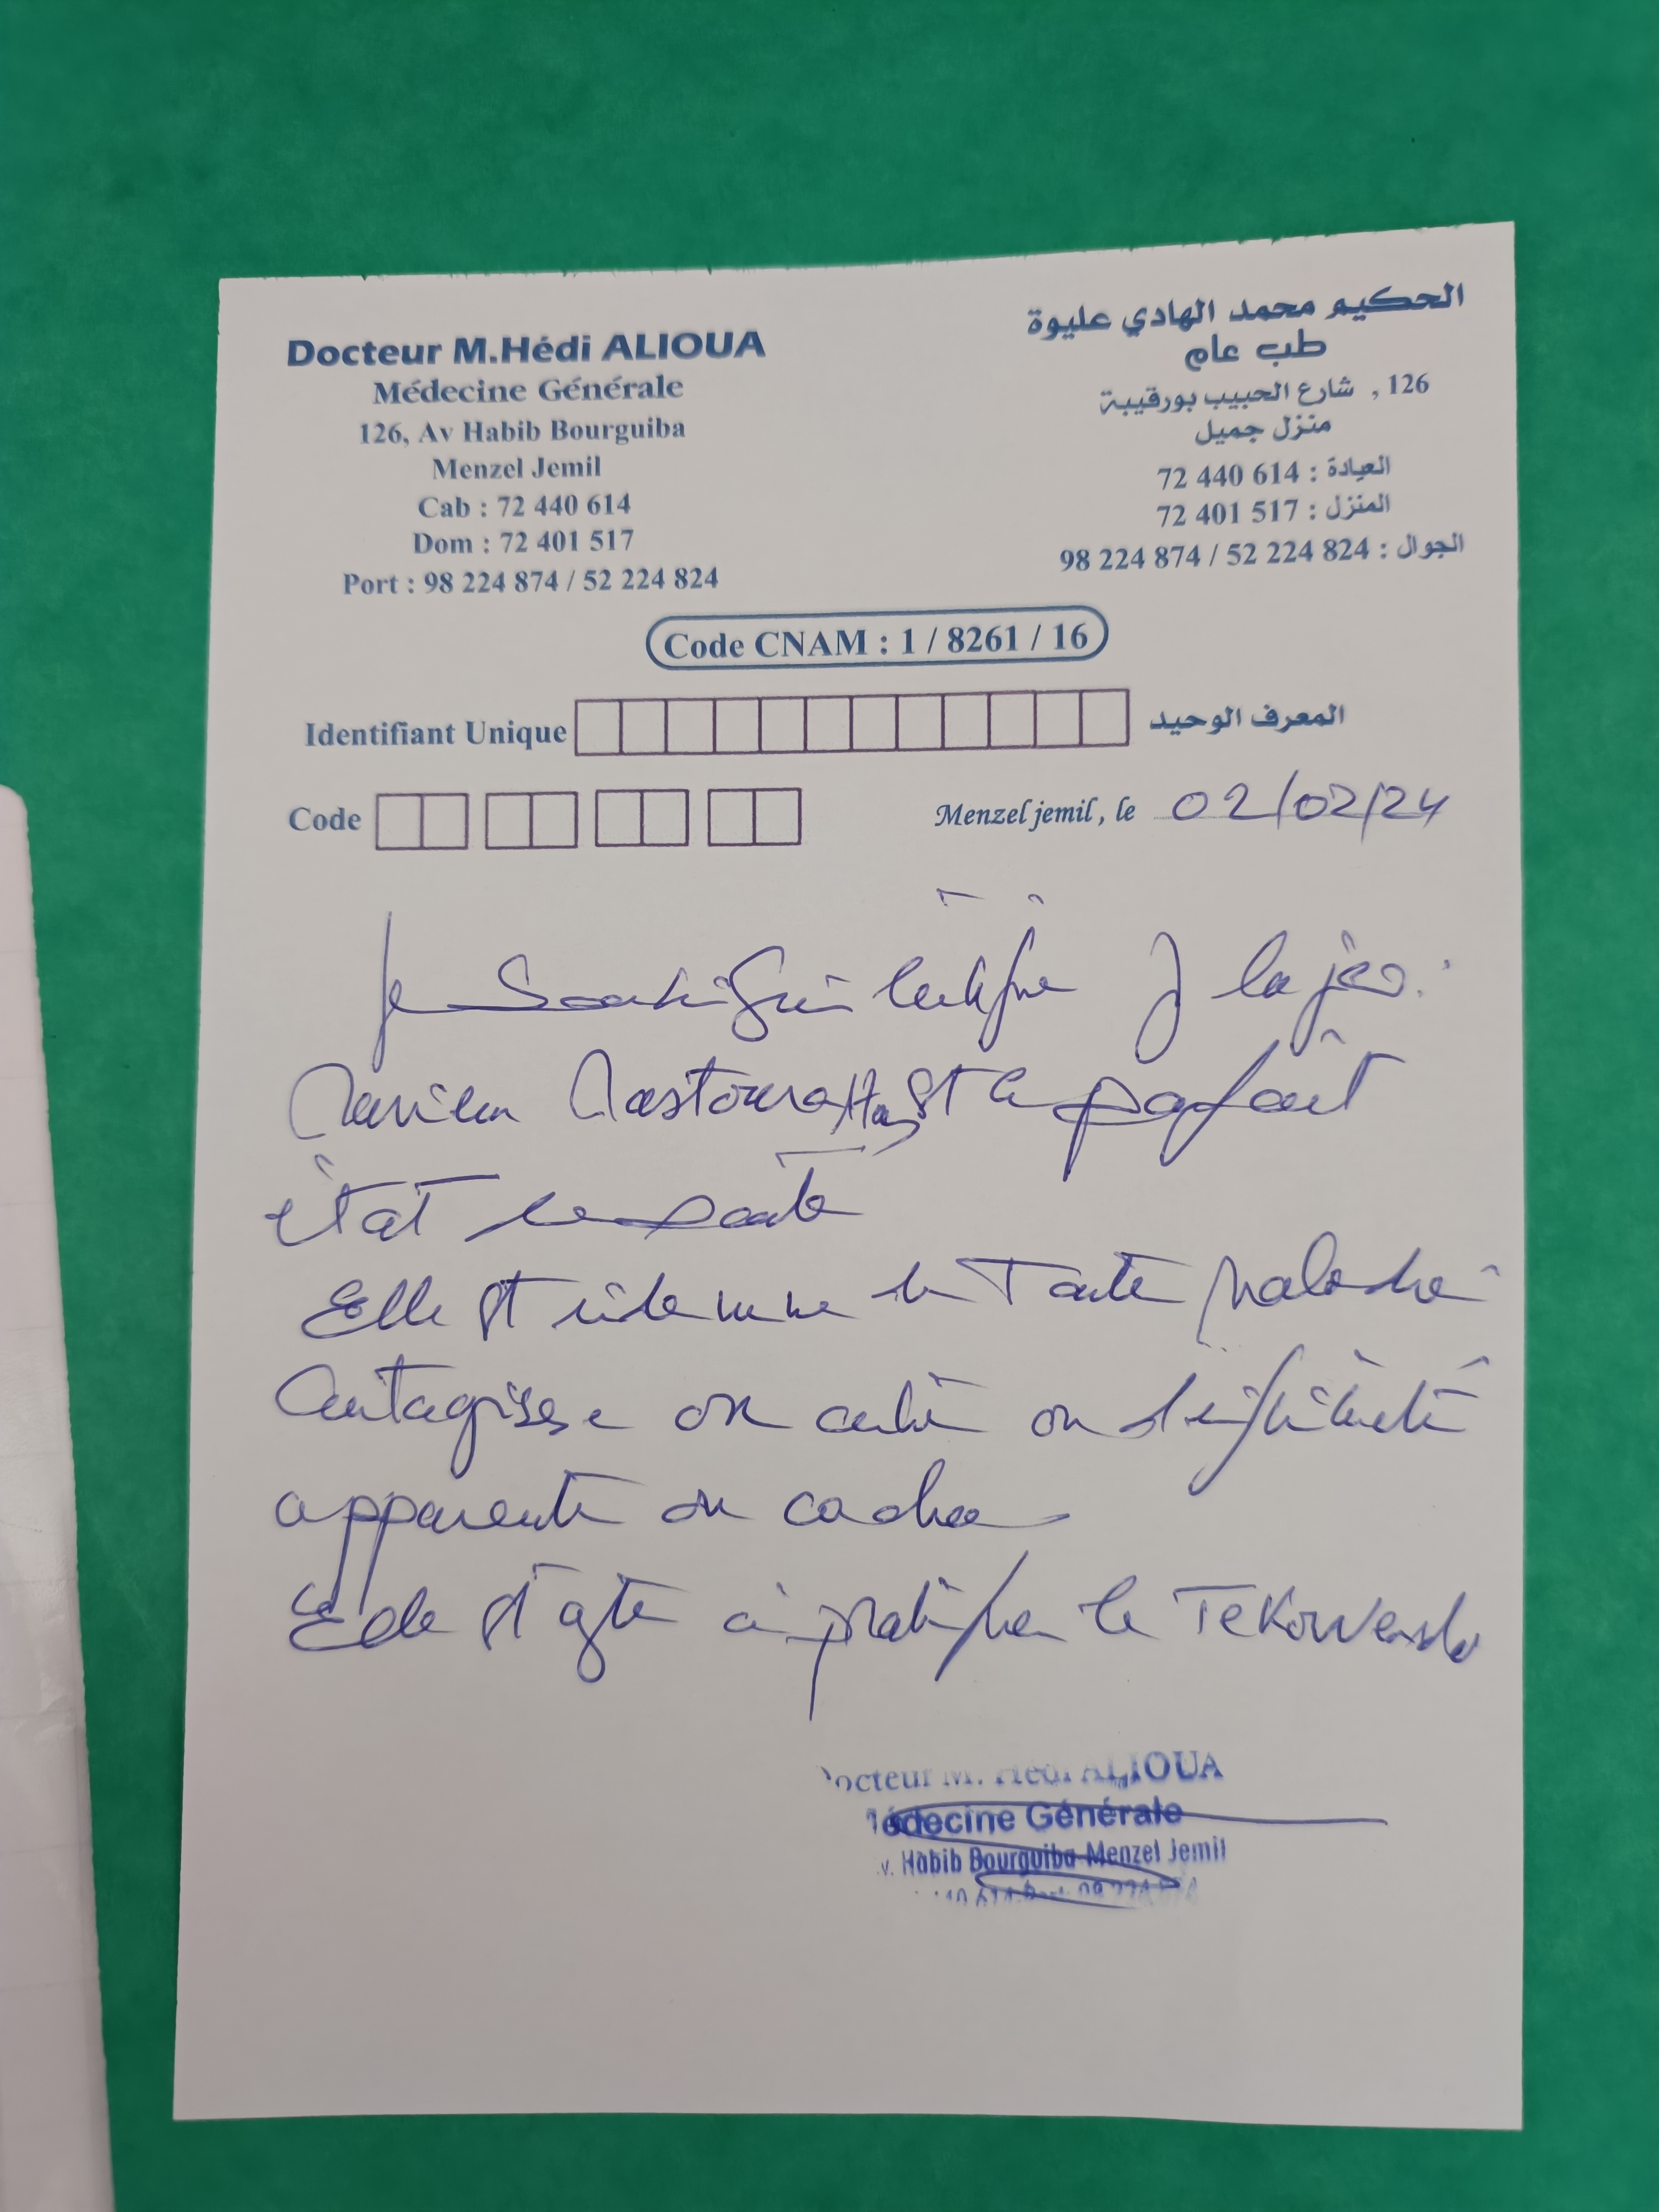 Docteur M.Hédi ALIOUA
Médecine Générale
126, Av Habib Bourguiba
Menzel Jemil
Cab : 72 440 614
Dom : 72 401 517
Port : 98 224 874 / 52 224 824
الحكيم محمد الهادي عليوة
طب عام
126 , شارع الحبيب بورقيبة
منزل جميل
العيادة : 72 440 614
المنزل : 72 401 517
الجوال : 98 224 874 / 52 224 824
Code CNAM : 1 / 8261 / 16
Identifiant Unique المعرف الوحيد
Code
Menzel jemil, le 02/02/24
Je soussigné certifie
est en parfait
état de santé
Elle est indemne de toute maladie
contagieuse ou
apparente ou cachée
Elle est apte à pratiquer le Tekowendo
Docteur M. Hédi ALIOUA
Médecine Générale
v. Habib Bourguiba Menzel Jemil